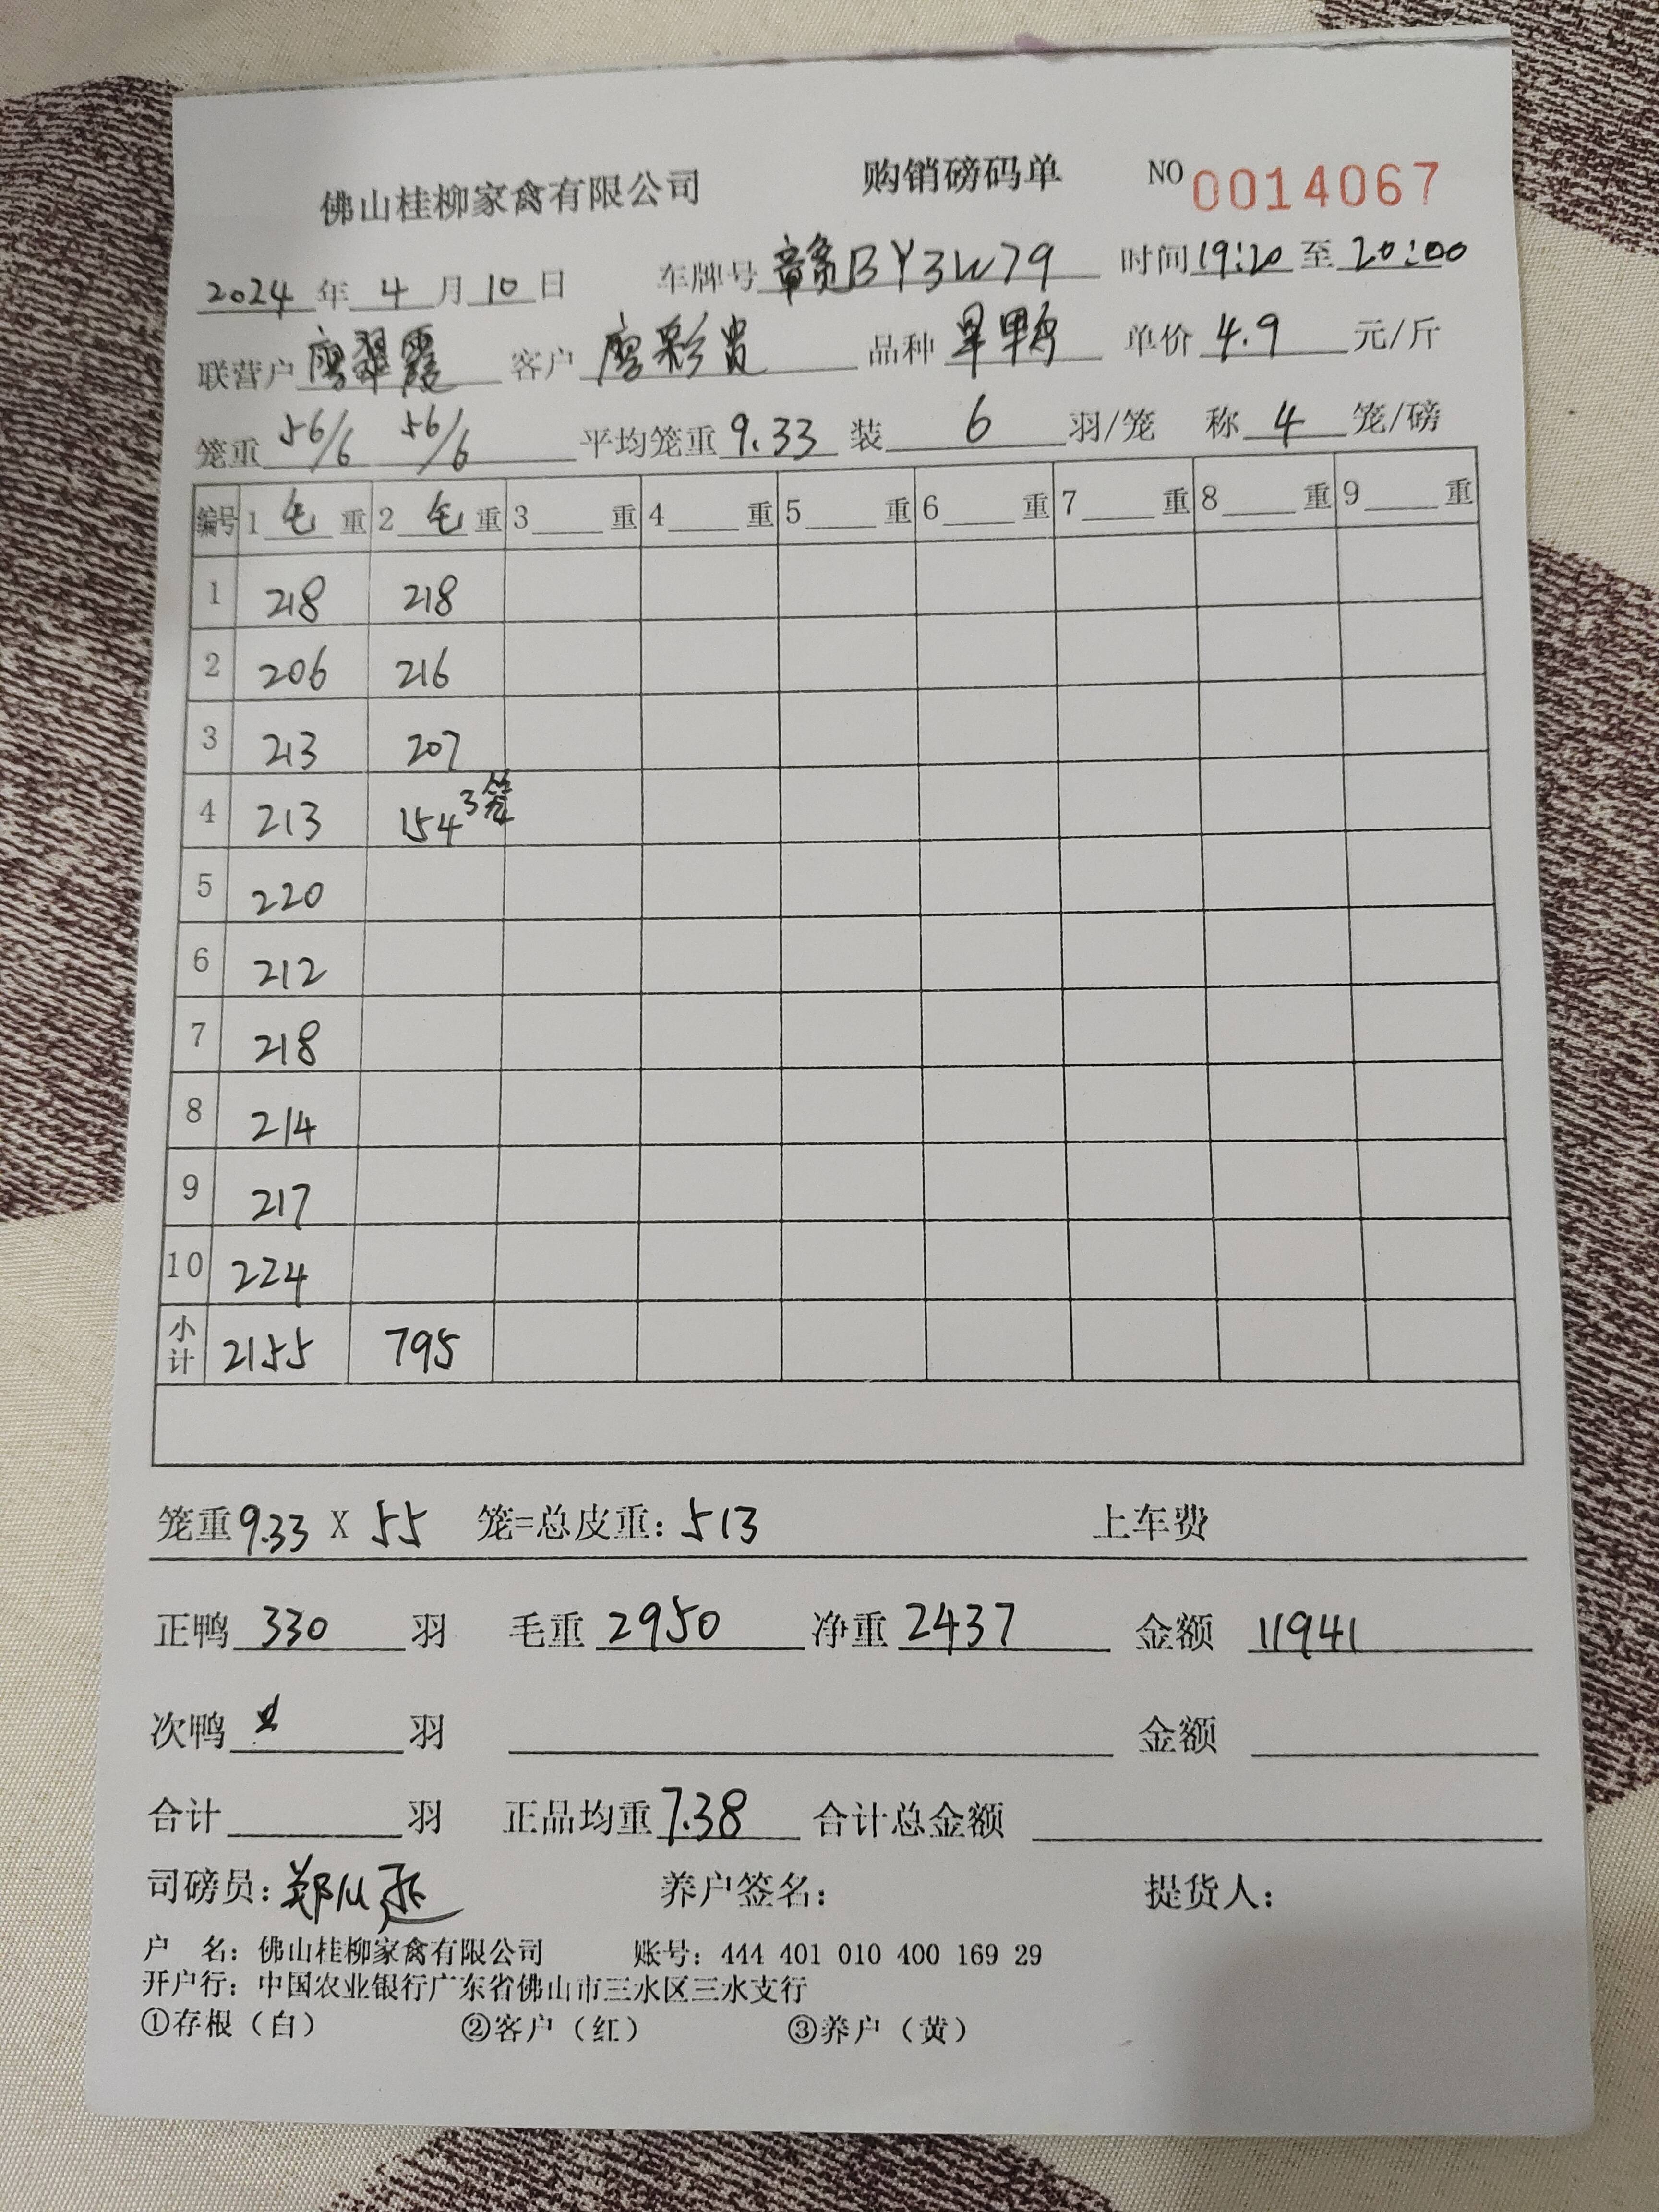 佛山桂柳家禽有限公司 购销磅码单 NO 0014067
2024 年 4 月 10 日 车牌号 赣BY3W79 时间 19:20 至 20:00
联营户 廖翠霞 客户 廖彩贵 品种 旱鸭 单价 4.9 元/斤
笼重 56/6 56/6 平均笼重 9.33 装 6 羽/笼 称 4 笼/磅
编号 1 毛 重 2 毛 重 3 重 4 重 5 重 6 重 7 重 8 重 9 重
1 218 218
2 206 216
3 213 207
4 213 154 3笼
5 220
6 212
7 218
8 214
9 217
10 224
小计 2155 795
笼重 9.33 X 55 笼=总皮重: 513 上车费
正鸭 330 羽 毛重 2950 净重 2437 金额 11941
次鸭 羽 金额
合计 羽 正品均重 7.38 合计总金额
司磅员: 郑 养户签名: 提货人:
户 名: 佛山桂柳家禽有限公司 账号: 444 401 010 400 169 29
开户行: 中国农业银行广东省佛山市三水区三水支行
①存根（白） ②客户（红） ③养户（黄）